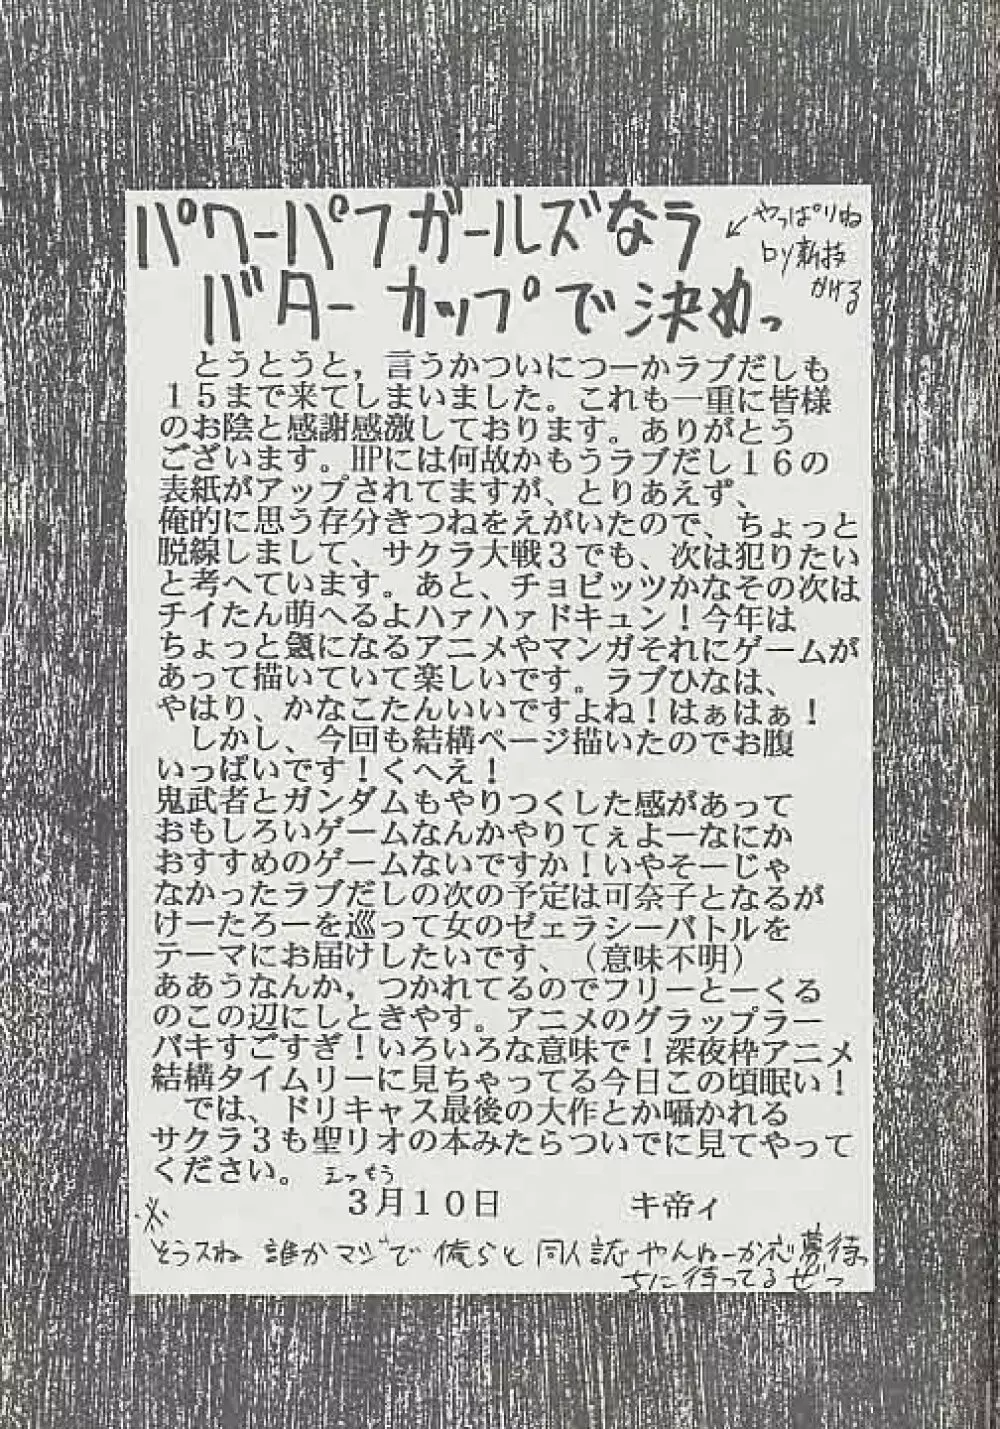 パワーパフガールズなラ
バターカップで決めっ
やっぱりね
新技
かける
とうとうと，言うかついにつーかラブだしも
１５まで来てしまいました。これも一重に皆様
のお陰と感謝感激しております。ありがとう
ございます。HPには何故かもうラブだし１６の
表紙がアップされてますが、とりあえず、
俺的に思う存分きつねをえがいたので、ちょっと
脱線しまして、サクラ大戦３でも、次は犯りたい
と考へています。あと、チョビッツかなその次は
チイたん萌へるよハァハァドキュン！今年は
ちょっと氣になるアニメやマンガそれにゲームが
あって描いていて楽しいです。ラブひなは、
やはり、かなこたんいいですよね！はぁはぁ！
しかし、今回も結構ページ描いたのでお腹
いっぱいです！くへえ！
鬼武者とガンダムもやりつくした感があって
おもしろいゲームなんかやりてぇよーなにか
おすすめのゲームないですか！いやそーじゃ
なかったラブだしの次の予定は可奈子となるが
けーたろーを巡って女のゼェラシーバトルを
テーマにお届けしたいです、（意味不明）
ああうなんか，つかれてるのでフリーとーくる
のこの辺にしときやす。アニメのグラップラー
バキすごすぎ！いろいろな意味で！深夜枠アニメ
結構タイムリーに見ちゃってる今日この頃眠い！
では、ドリキャス最後の大作とか囁かれる
サクラ３も聖リオの本みたらついでに見てやって
ください。 えっもう
３月１０日 キ帝ィ
※
そうスね 誰かマジで 俺らと 同人誌 やんねーか 応募待っ
ちに待ってるぜっ